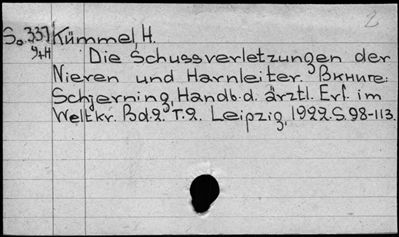 2
So 337 Kümmel, H.
9+H
Die Schussverletzungen der
Nieren und Harnleiter. Вкниге:
Schjerning, Handb. d. ärztl. Erf. im
Weltkr. Bd. 2. T. 2. Leipzig, 1922. S. 98-113.